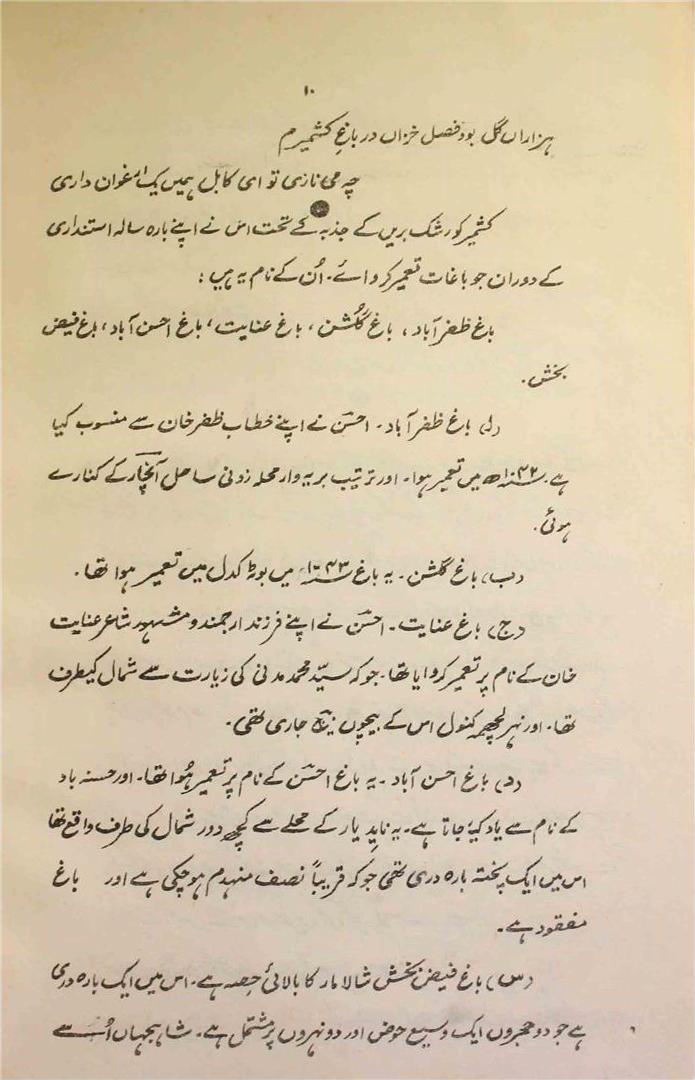 ۱۰
ہزاراں گل بود فصل خزاں در باغِ کشمیرم
چہ می نازی تو ای کابل ہمیں یک ارغوان داری
کشمیر کو رشک بریں کے جذبہ کے تحت اس نے اپنے بارہ سالہ استنداری
کے دوران جو باغات تعمیر کروائے۔ اُن کے نام یہ ہیں:
باغ ظفر آباد، باغ گلُشن، باغ عنایت، باغ احسن آباد، باغ فیض
بخش۔
(ل) باغ ظفر آباد۔ احسنؔ نے اپنے خطاب ظفر خان سے منسوب کیا
ہے۔ ۱۰۴۲ھ میں تعمیر ہوا۔ اور ترتیب بریہ وار محلہ زونی ساحل آنچار کے کنارے
ہوئی۔
(ب) باغ گلشن۔ یہ باغ ۱۰۴۳ میں بوٹہ کدل میں تعمیر ہوا تھا۔
(ج) باغ عنایت۔ احسنؔ نے اپنے فرزند ارجمند و مشہور شاعر عنایت
خان کے نام پر تعمیر کروایا تھا۔ جو کہ سیّد محمد مدنی کی زیارت سے شمال کیطرف
تھا۔ اور نہر لچھمہ کنول اس کے بیچوں بیچ جاری تھی۔
(د) باغ احسن آباد۔ یہ باغ احسنؔ کے نام پر تعمیر ہُوا تھا۔ اور حسنہ باد
کے نام سے یاد کیا جاتا ہے۔ یہ ناید یار کے محلے سے کچھ دور شمال کی طرف واقع تھا
اس میں ایک پختہ بارہ دری تھی جو کہ قریباً نصف منہدم ہو چکی ہے اور باغ
مفقود ہے۔
(س) باغ فیض بخش شالامار کا بالائی حِصہ ہے۔ اس میں ایک بارہ دری
ہے جو دو حجروں ایک وسیع حوض اور دو نہروں پر مشتمل ہے۔ شاہجہاں اُسے